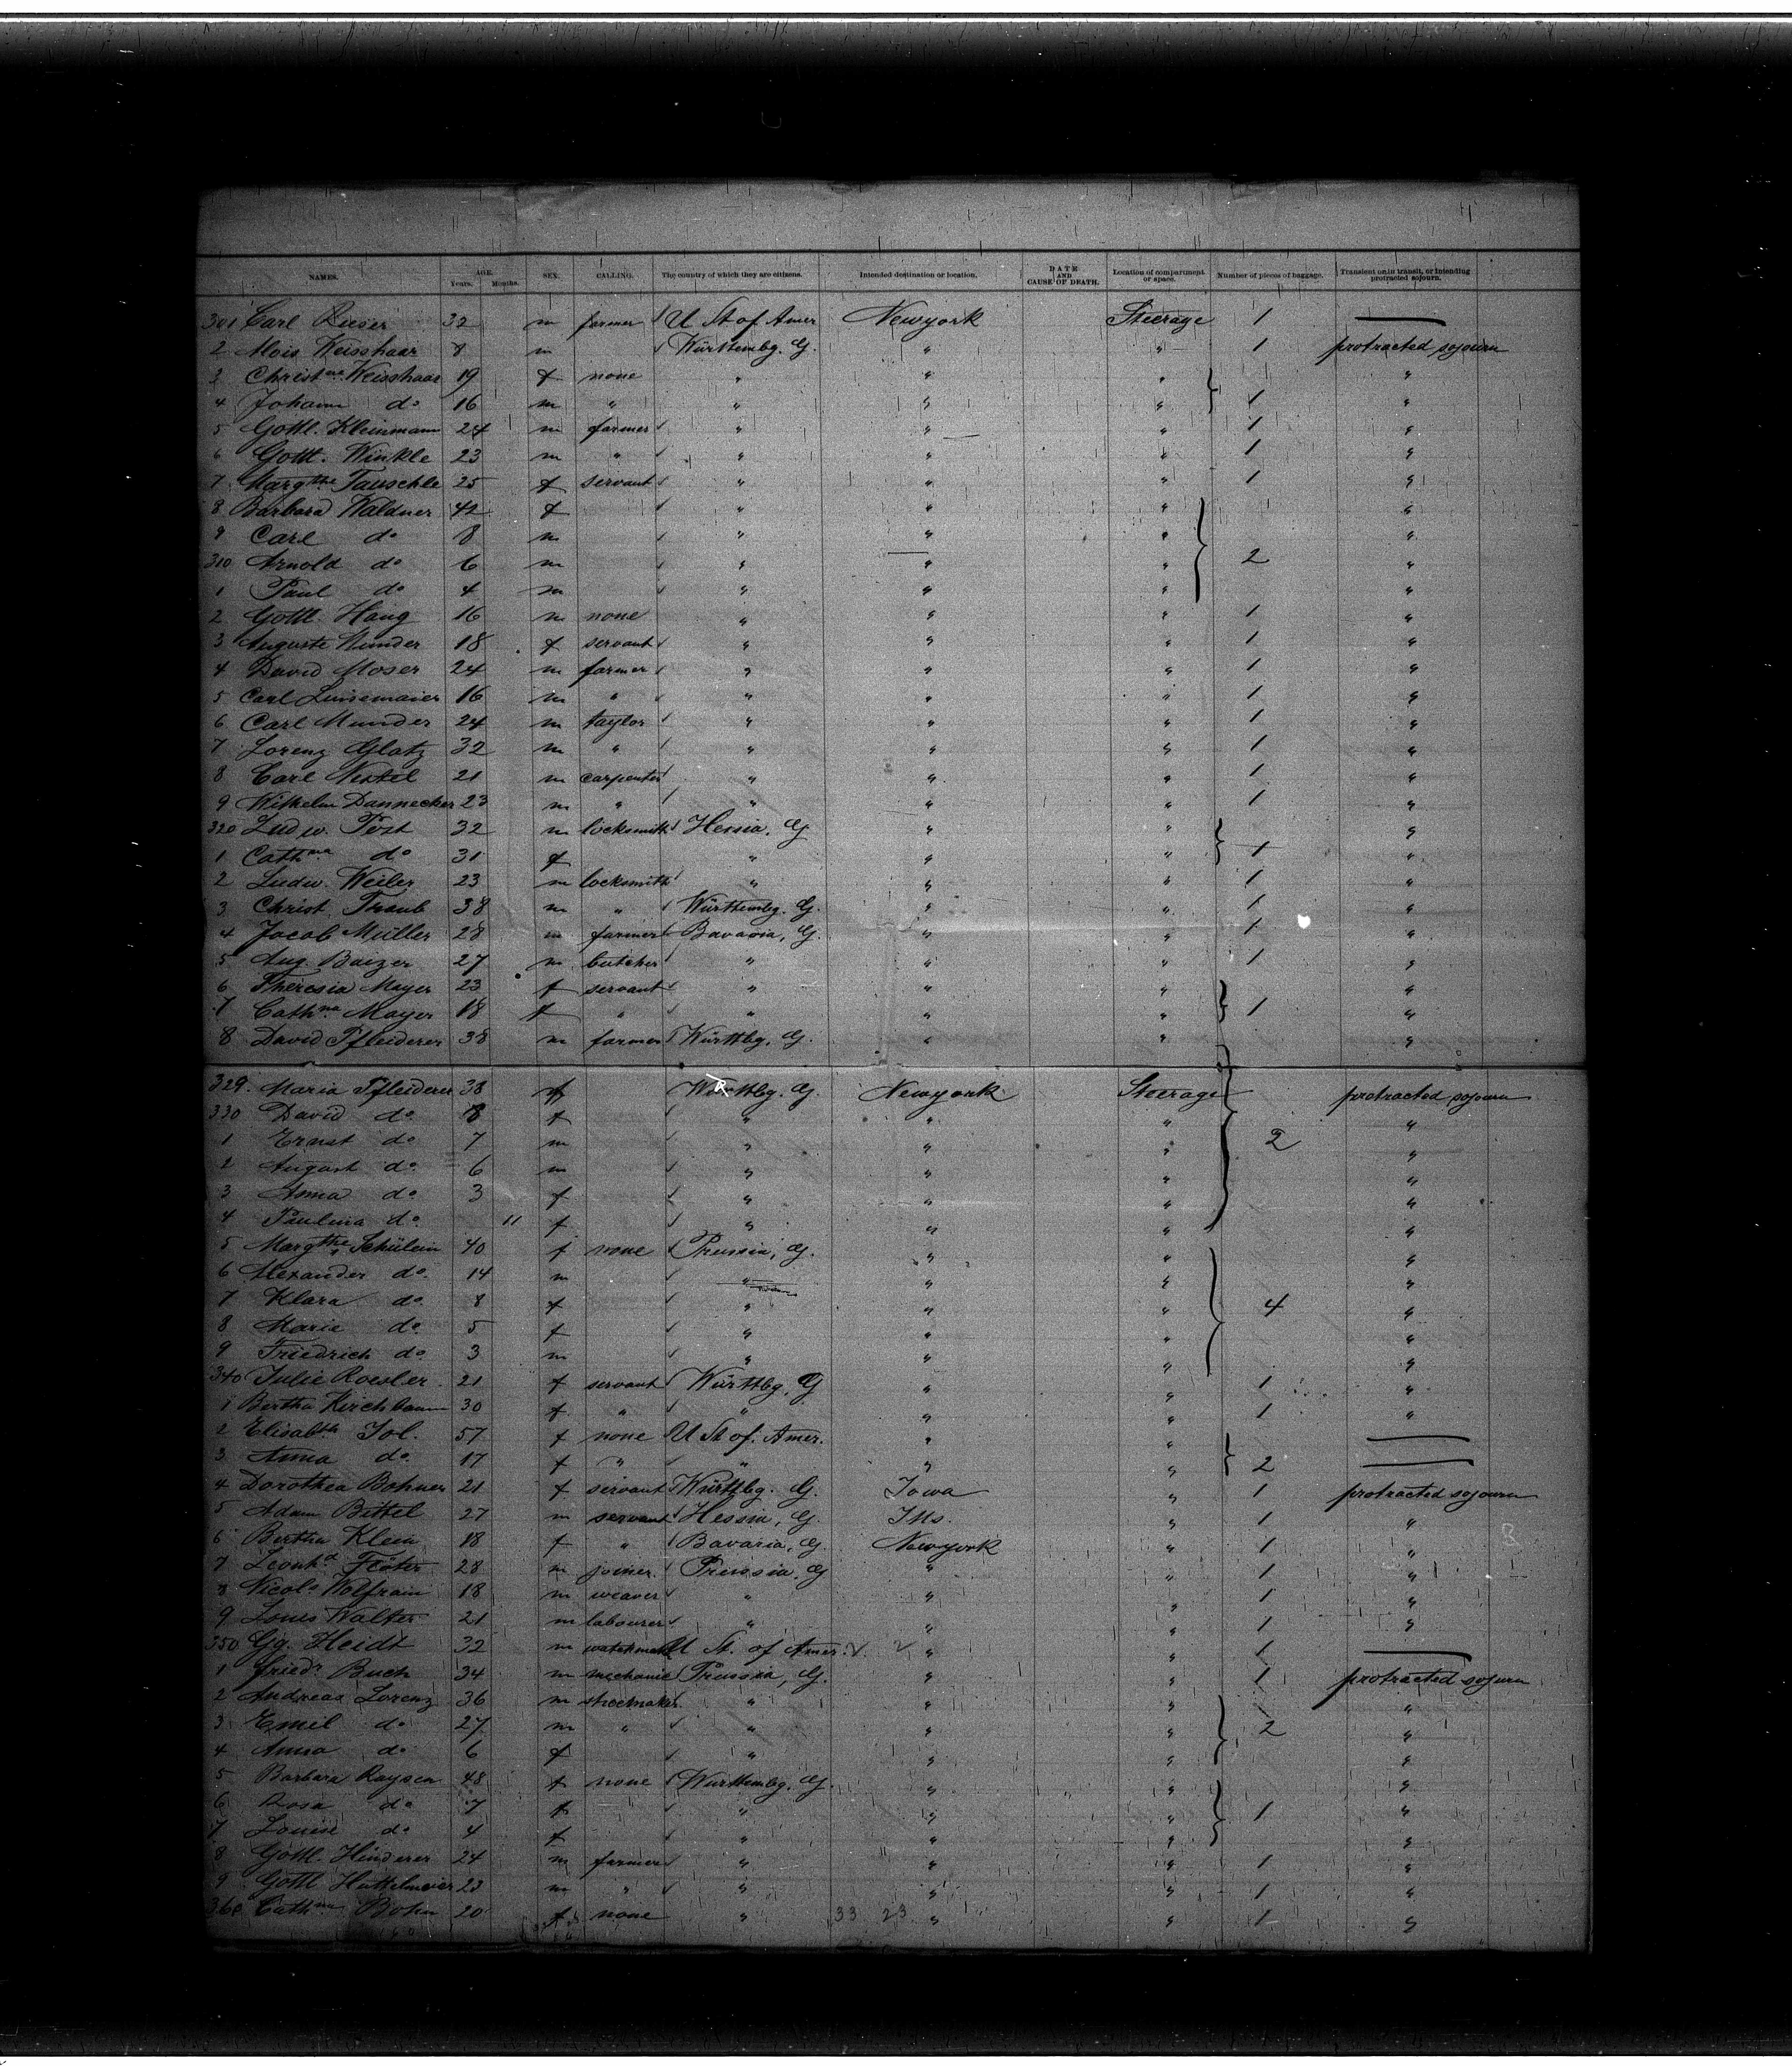 NAMES. AGE. Years. Months. SEX. CALLING. The country of which they are citizens. Intended destination or location. DATE AND CAUSE OF DEATH. Location of compartment or space. Number of pieces of baggage. Transient or in transit, or intending protracted sojourn.
301 Carl Rieser 32 m farmer U St of Amer Newyork Steerage 1 —
2 Alois Weisshaar 8 m Württembg. G. " " 1 protracted sojourn
3 Christne Weisshaar 19 f none " " " "
4 Johann do 16 m " " " " 1 "
5 Gottl. Kleinmann 24 m farmer " " " 1 "
6 Gottl. Winkle 23 m " " " " 1 "
7 Margthe Tauschle 25 f servant " " " 1 "
8 Barbara Waldner 42 f " " " "
9 Carl do 8 m " " " "
310 Arnold do 6 m " " " 2 "
1 Paul do 4 m " " " "
2 Gottl. Haug 16 m none " " " 1 "
3 Auguste Munder 18 f servant " " " 1 "
4 David Moser 24 m farmer " " " 1 "
5 Carl Luisemaier 16 m " " " " 1 "
6 Carl Munder 24 m taylor " " " 1 "
7 Lorenz Glatz 32 m " " " " 1 "
8 Carl Nestel 21 m carpenter " " " 1 "
9 Wilhelm Dannecker 23 m " " " " 1 "
320 Ludw. Post 32 m locksmith Hessia. G " " "
1 Cathne do 31 f " " " 1 "
2 Ludw. Weiler 23 m locksmith " " " 1 "
3 Christ. Traub 38 m " Württembg. G. " " 1 "
4 Jacob Müller 28 m farmer Bavaria, G. " " 1 "
5 Aug. Baizer 27 m butcher " " " 1 "
6 Theresia Mayer 23 f servant " " " "
7 Cathne Mayer 18 f " " " " 1 "
8 David Pfleiderer 38 m farmer Württbg. G. " " "
329. Maria Pfleiderer 38 f Württbg. G. Newyork Steerage protracted sojourn
330 David do 8 f " " " "
1 Ernst do 7 m " " " 2 "
2 August do 6 m " " " "
3 Anna do 3 f " " " "
4 Paulina do 11 f " " " "
5 Margthe Schülein 40 f none Prussia, G. " " "
6 Alexander do. 14 m " " " "
7 Klara do. 8 f " " " 4 "
8 Marie do. 5 f " " " "
9 Friedrich do. 3 m " " " "
340 Julie Roesler 21 f servant Württbg. G " " 1 "
1 Bertha Kirchbaum 30 f " " " " 1 "
2 Elisabth Jol. 57 f none U St of. Amer. " " —
3 Anna do. 17 f " " " " 2 —
4 Dorothea Bohner 21 f servant Württbg. G. Iowa " 1 protracted sojourn
5 Adam Bittel 27 m servant Hessia, G. Ills. " 1 "
6 Bertha Klein 18 f " Bavaria, G. Newyork " 1 "
7 Leonhd 28 m joiner. Prussia, G " " 1 "
8 Nicol. Wolfram 18 m weaver " " " 1 "
9 Louis Walter 21 m labourer " " " 1 "
350 Gg. Heidt 32 m U St. of Amer. " " 1 —
1 Friedr Buch 34 m mechanic Prussia, G. " " 1 protracted sojourn
2 Andreas Lorenz 36 m shoemaker " " " "
3 Emil do 27 m " " " " 2 "
4 Anna do 6 f " " " "
5 Barbara Rayser 48 f none Württembg. G. " " "
6 Rosa do 7 f " " " 1 "
7 Louise do 4 f " " " "
8 Gottl. Hinderer 24 m farmer " " " 1 "
9 Gottl Huttelmeier 23 m " " " " 1 "
360 Cathne Bohn 20 f none " 33 23 " " 1 "